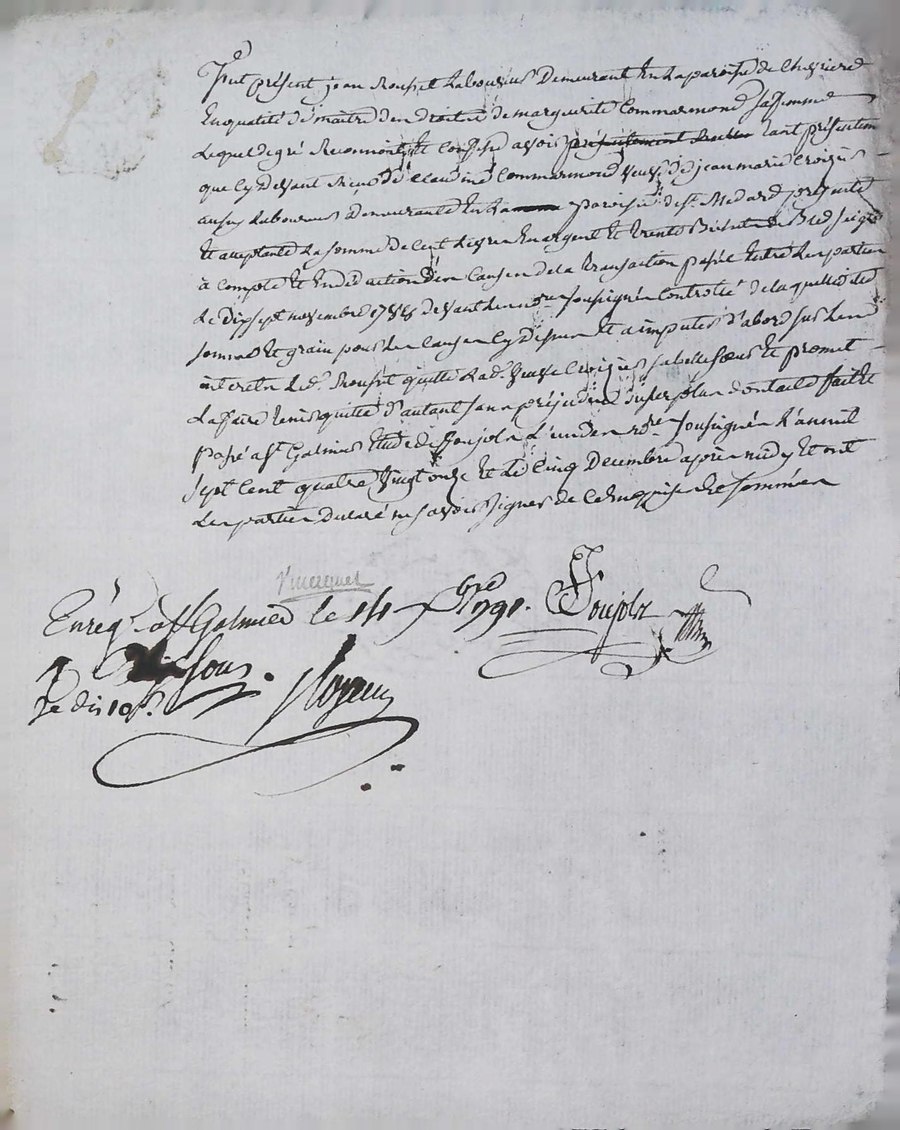 Fut présent jean Rousset Laboureur Demeurant En La paroisse de Chevriere
En qualité de maitre des droits de marguerite Commarmond sa femme
Lequel de gré Reconnoit et Confesse avoir présentement tant présentement
que Cy devant Reçu de Claudine Commarmond veuve de jean marie Croizier
aussy Laboureur demeurante En La paroisse de st. Medard présente
Et acceptante La somme de Cent Livres En argent Et trente Bichets de Bled seigle
à Compte Et En déduction des Causes de la transaction passée Entre Les parties
Le dix sept novembre 1788 devant Les nores. soussignés Controllé de laquelle
somme Et grain pour Les Causes Cy dessus Et a imputer d'abord sur Les
interets Led. Rousset quitte Lad. veuve Croizier sa belle soeur Et promet
L'affaire tenir quitte d'autant sans préjudice du surplus dont acte fait Et
passé a st. Galmier Etude de Poujols L'un des nores. soussignés L'an mil
sept Cent quatre vingt onze Et Le Cinq Decembre après midy Et ont
Les parties declaré ne savoir signer de Ce Enquises Et sommées
Enreg. a st Galmier le 14 Xbre 1791.
Poujols
sous.
Je dis 10 s.